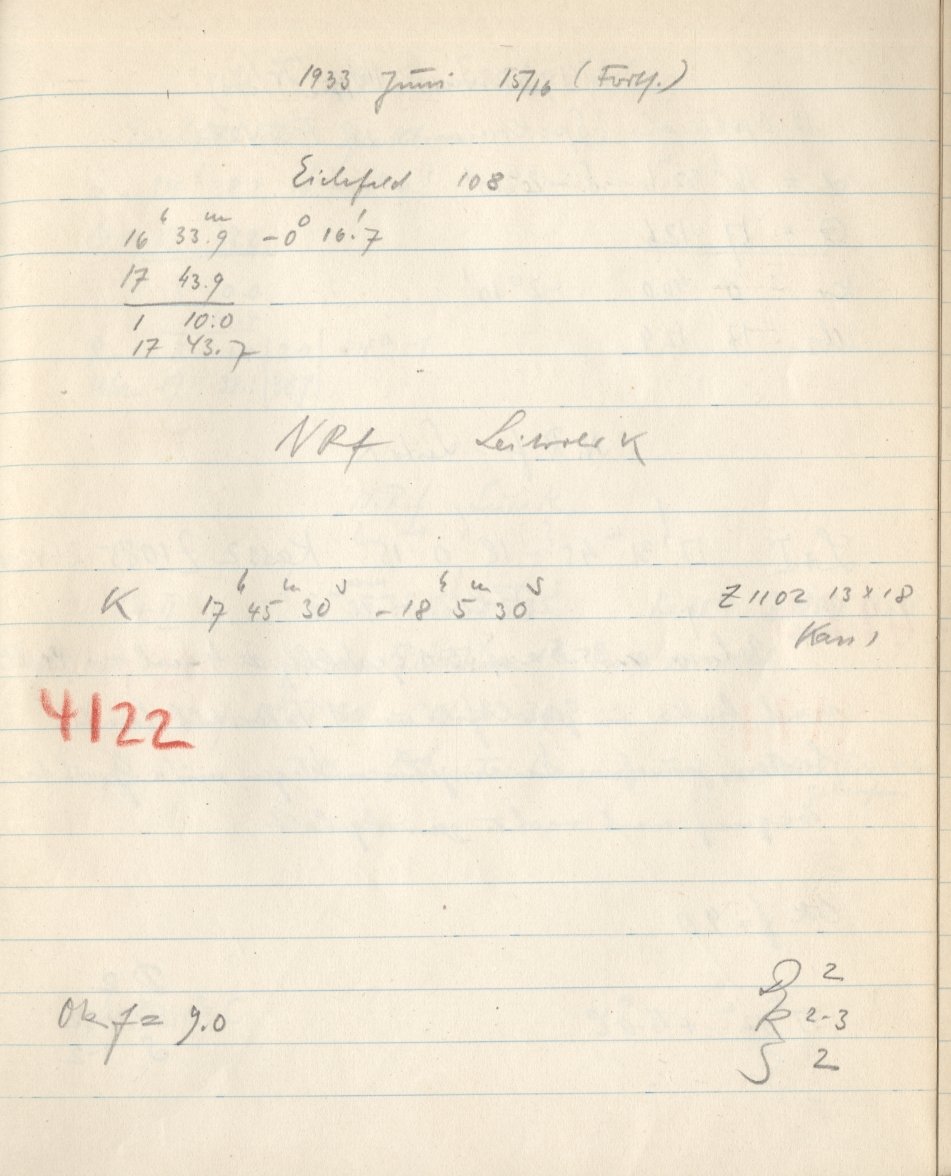 1933 Juni 15/16 (Forts.)
Eichfeld 108
16ʰ 33ᵐ.9 -0° 16'.7
17 43.9
1 10.0
17 43.7
NRf Leitrohr K
K 17ʰ 45ᵐ 30ˢ - 18ʰ 5ᵐ 30ˢ Z 1102 13 x 18
Kass 1
4122
D 2
Ok f = 9.0 R 2-3
S 2